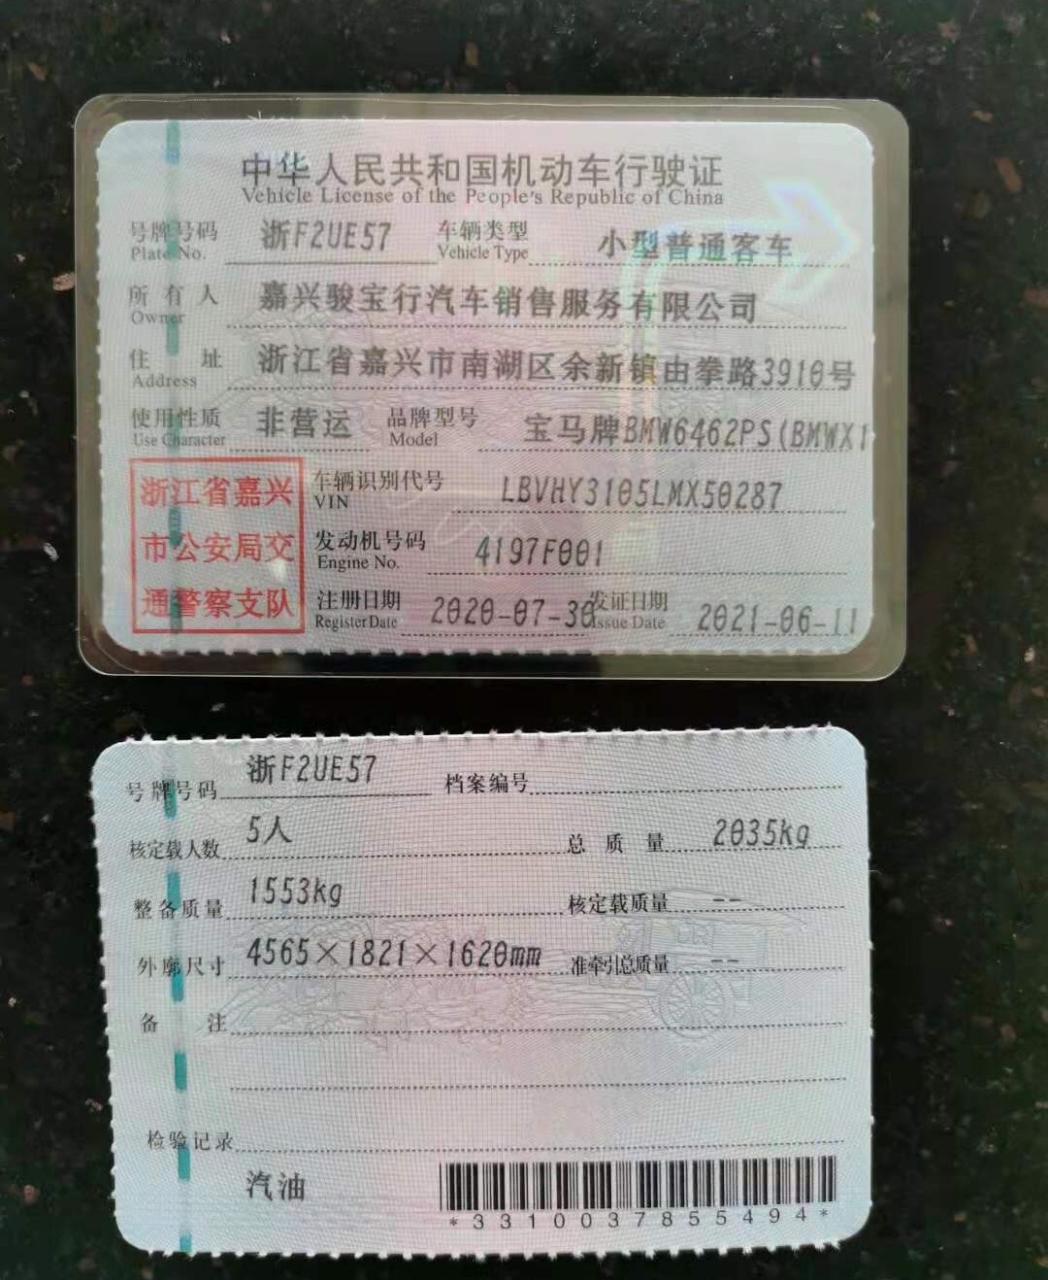 中华人民共和国机动车行驶证
Vehicle License of the People's Republic of China
号牌号码 浙F2UE57 车辆类型 小型普通客车
Plate No. Vehicle Type
所有人 嘉兴骏宝行汽车销售服务有限公司
Owner
住址 浙江省嘉兴市南湖区余新镇由拳路3910号
Address
使用性质 非营运 品牌型号 宝马牌BMW6462PS(BMWX1
Use Character Model
浙江省嘉兴
市公安局交
通警察支队
车辆识别代号 LBVHY3105LMX50287
VIN
发动机号码 4197F001
Engine No.
注册日期 2020-07-30 发证日期 2021-06-11
Register Date Issue Date
号牌号码 浙F2UE57 档案编号
核定载人数 5人 总质量 2035kg
整备质量 1553kg 核定载质量 --
外廓尺寸 4565×1821×1620mm 准牵引总质量 --
备注
检验记录
汽油
*3310037855494*